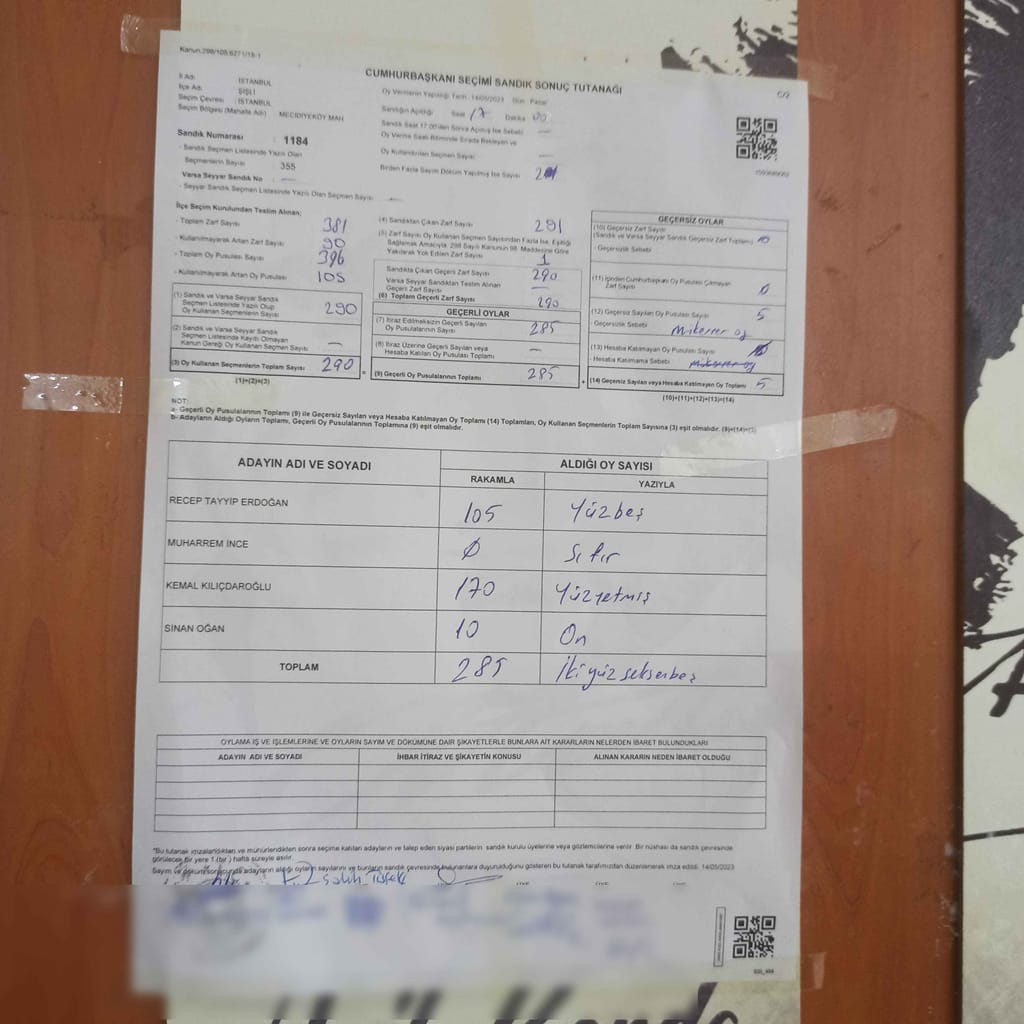 Kanun:298/105,627 1/18-1
CUMHURBAŞKANI SEÇİMİ SANDIK SONUÇ TUTANAĞI
C/2
İl Adı : İSTANBUL
İlçe Adı : ŞİŞLİ
Seçim Çevresi : İSTANBUL
Seçim Bölgesi (Mahalle Adı) : MECİDİYEKÖY MAH
Sandık Numarası : 1184
- Sandık Seçmen Listesinde Yazılı Olan
Seçmenlerin Sayısı : 355
Varsa Seyyar Sandık No : —
- Seyyar Sandık Seçmen Listesinde Yazılı Olan Seçmen Sayısı : —
Oy Vermenin Yapıldığı Tarih : 14/05/2023 Gün : Pazar
Sandığın Açıldığı Saat 17 Dakika 00
Sandık Saat 17.00'den Sonra Açılmış İse Sebebi —
Oy Verme Saati Bitiminde Sırada Bekleyen ve
Oy Kullandırılan Seçmen Sayısı —
Birden Fazla Sayım Döküm Yapılmış İse Sayısı
İlçe Seçim Kurulundan Teslim Alınan;
- Toplam Zarf Sayısı 381
- Kullanılmayarak Artan Zarf Sayısı 90
- Toplam Oy Pusulası Sayısı 396
- Kullanılmayarak Artan Oy Pusulası 105
(1) Sandık ve Varsa Seyyar Sandık
Seçmen Listesinde Yazılı Olup
Oy Kullanan Seçmenlerin Sayısı 290
(2) Sandık ve Varsa Seyyar Sandık
Seçmen Listesinde Kayıtlı Olmayan
Kanun Gereği Oy Kullanan Seçmen Sayısı —
(3) Oy Kullanan Seçmenlerin Toplam Sayısı 290
(1)+(2)=(3)
(4) Sandıktan Çıkan Zarf Sayısı 291
(5) Zarf Sayısı Oy Kullanan Seçmen Sayısından Fazla İse, Eşitliği
Sağlamak Amacıyla, 298 Sayılı Kanunun 98. Maddesine Göre
Yakılarak Yok Edilen Zarf Sayısı 1
Sandıkta Çıkan Geçerli Zarf Sayısı 290
Varsa Seyyar Sandıktan Teslim Alınan
Geçerli Zarf Sayısı —
(6) Toplam Geçerli Zarf Sayısı 290
GEÇERLİ OYLAR
(7) İtiraz Edilmeksizin Geçerli Sayılan
Oy Pusulalarının Sayısı 285
(8) İtiraz Üzerine Geçerli Sayılan veya
Hesaba Katılan Oy Pusulası Toplamı —
(9) Geçerli Oy Pusulalarının Toplamı 285
GEÇERSİZ OYLAR
(10) Geçersiz Zarf Sayısı
(Sandık ve Varsa Seyyar Sandık Geçersiz Zarf Toplamı)
- Geçersizlik Sebebi
(11) İçinden Cumhurbaşkanı Oy Pusulası Çıkmayan
Zarf Sayısı 0
(12) Geçersiz Sayılan Oy Pusulası Sayısı 5
- Geçersizlik Sebebi Mükerrer oy
(13) Hesaba Katılmayan Oy Pusulası Sayısı
- Hesaba Katılmama Sebebi
(14) Geçersiz Sayılan veya Hesaba Katılmayan Oy Toplamı 5
(10)+(11)+(12)+(13)=(14)
NOT:
a- Geçerli Oy Pusulalarının Toplamı (9) ile Geçersiz Sayılan veya Hesaba Katılmayan Oy Toplamı (14) Toplamları, Oy Kullanan Seçmenlerin Toplam Sayısına (3) eşit olmalıdır. (9)+(14)=(3)
b- Adayların Aldığı Oyların Toplamı, Geçerli Oy Pusulalarının Toplamına (9) eşit olmalıdır.
ADAYIN ADI VE SOYADI ALDIĞI OY SAYISI
RAKAMLA YAZIYLA
RECEP TAYYİP ERDOĞAN 105 Yüzbeş
MUHARREM İNCE 0 Sıfır
KEMAL KILIÇDAROĞLU 170 Yüzyetmiş
SİNAN OĞAN 10 On
TOPLAM 285 İkiyüz seksenbeş
OYLAMA İŞ VE İŞLEMLERİNE VE OYLARIN SAYIM VE DÖKÜMÜNE DAİR ŞİKAYETLERLE BUNLARA AİT KARARLARIN NELERDEN İBARET BULUNDUKLARI
ADAYIN ADI VE SOYADI İHBAR İTİRAZ VE ŞİKAYETİN KONUSU ALINAN KARARIN NEDEN İBARET OLDUĞU
"Bu tutanak imzalandıktan ve mühürlendikten sonra seçime katılan adayların ve talep eden siyasi partilerin sandık kurulu üyelerine veya gözlemcilerine verilir. Bir nüshası da sandık çevresinde
görülecek bir yere 1 (bir ) hafta süreyle asılır.
Sayım ve döküm sonucunda adayların aldığı oyların sayılarını ve bunların sandık çevresinde bulunanlara duyurulduğunu gösteren bu tutanak tarafımızdan düzenlenerek imza edildi. 14/05/2023